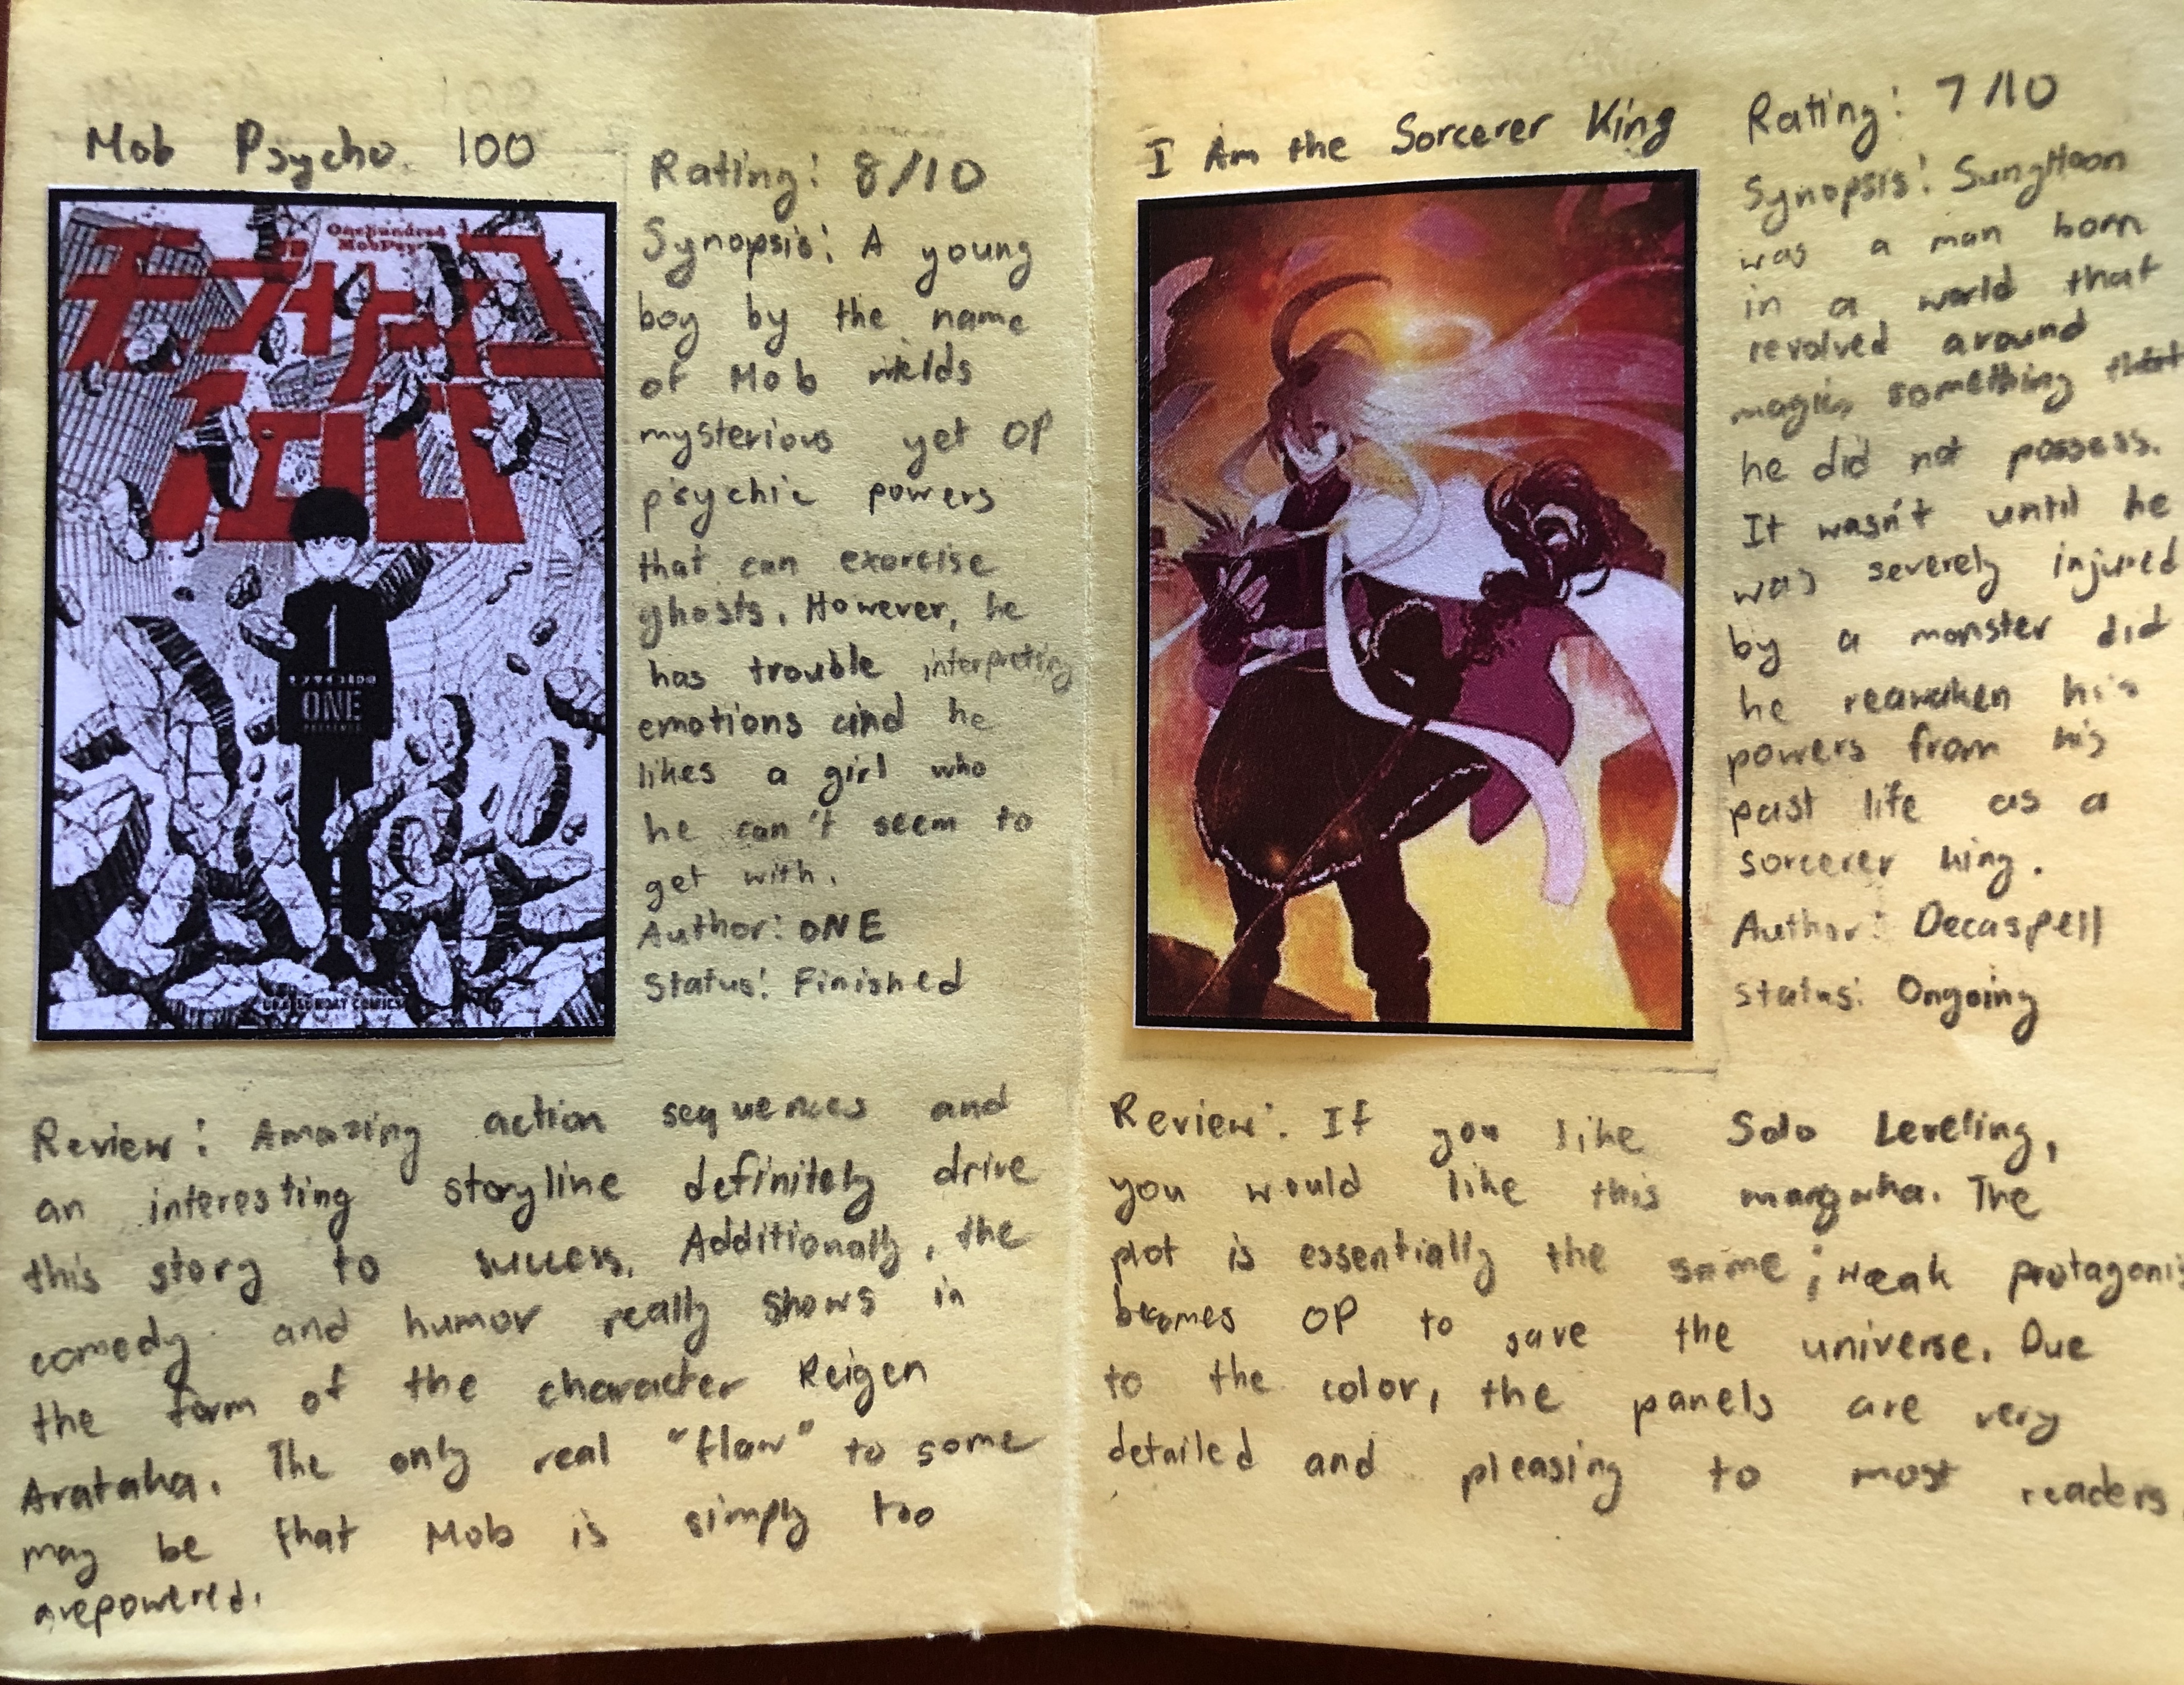 Mob Psycho 100
Onehundred
モブサイコ
100
1
モブサイコ100
ONE
Rating: 8/10
Synopsis: A young
boy by the name
of Mob wields
mysterious yet OP
psychic powers
that can exorcise
ghosts. However, he
has trouble interpreting
emotions and he
likes a girl who
he can't seem to
get with.
Author: ONE
Status: Finished
Review: Amazing action sequences and
an interesting storyline definitely drive
this story to success. Additionally, the
comedy and humor really shows in
the form of the character Reigen
Arataka. The only real "flaw" to some
may be that Mob is simply too
overpowered.
I Am the Sorcerer King
Rating: 7/10
Synopsis: SungHoon
was a man born
in a world that
revolved around
magic, something that
he did not possess.
It wasn't until he
was severely injured
by a monster did
he reawaken his
powers from his
past life as a
sorcerer king.
Author: Decaspell
Status: Ongoing
Review: If you like Solo Leveling,
you would like this The
plot is essentially the same; weak protagonis
becomes OP to save the universe. Due
to the color, the panels are very
detailed and pleasing to most readers.